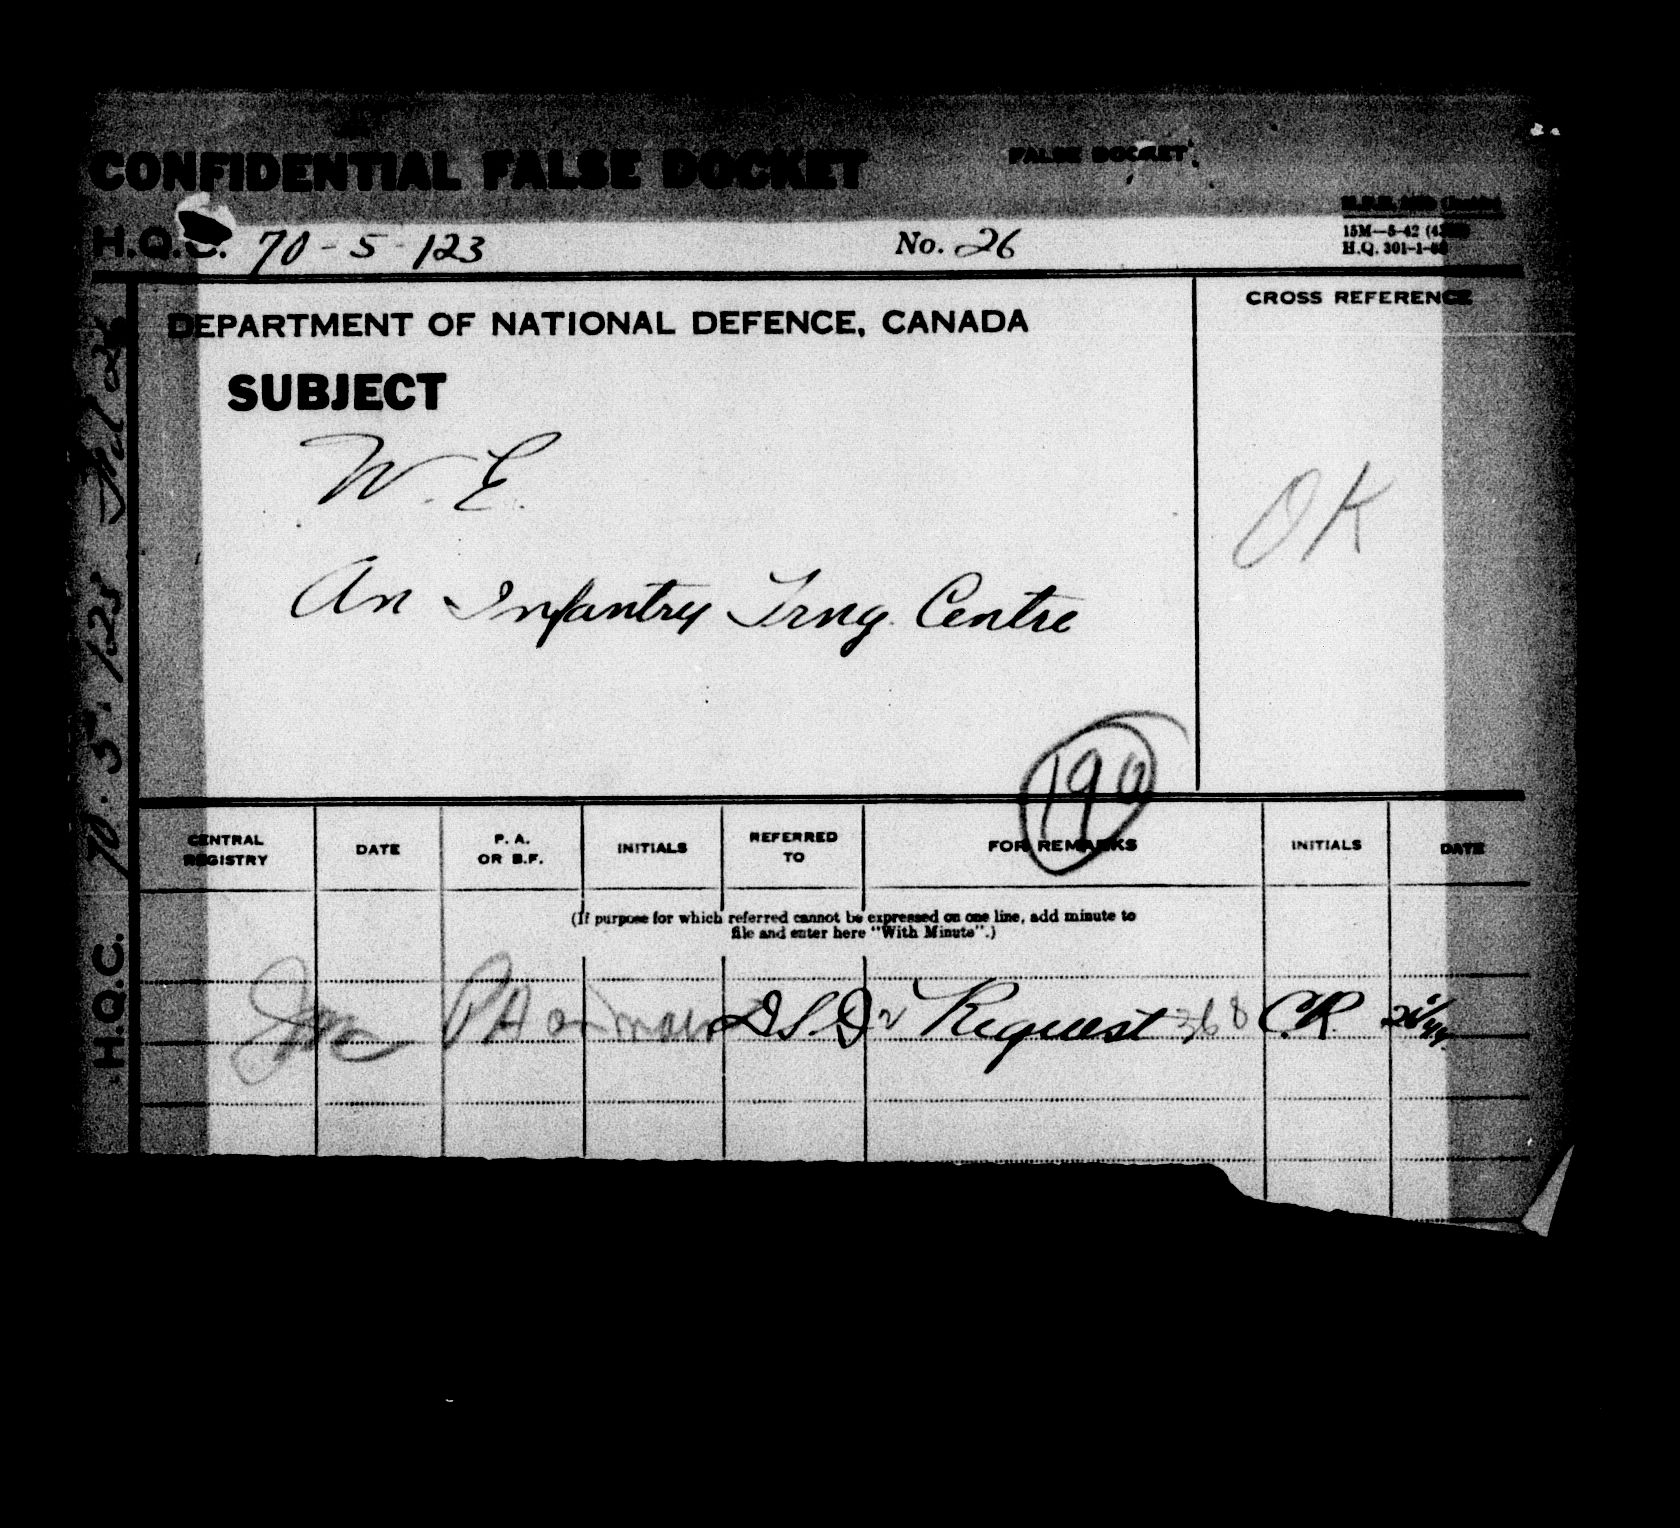 CONFIDENTIAL FALSE DOCKET
FALSE DOCKET
H.Q.C. 70-5-123
No. 26
15M—5-42
H.Q. 301-1-
DEPARTMENT OF NATIONAL DEFENCE, CANADA
CROSS REFERENCE
SUBJECT
W. E.
OK
An Infantry Trng. Centre
190
CENTRAL REGISTRY
DATE
P. A. OR B.F.
INITIALS
REFERRED TO
FOR REMARKS
INITIALS
DATE
(If purpose for which referred cannot be expressed on one line, add minute to
file and enter here "With Minute".)
PA DSD Request 368 C.R.
H.Q.C. 70.5.123